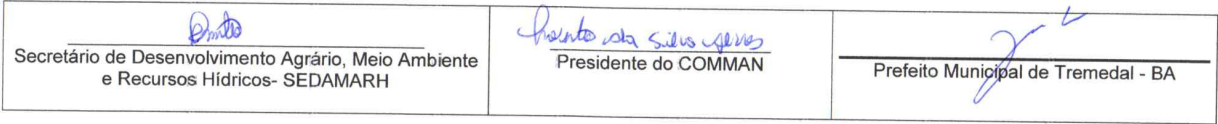 Secretário de Desenvolvimento Agrário, Meio Ambiente
e Recursos Hídricos- SEDAMARH
da Silva
Presidente do COMMAN
Prefeito Municipal de Tremedal - BA